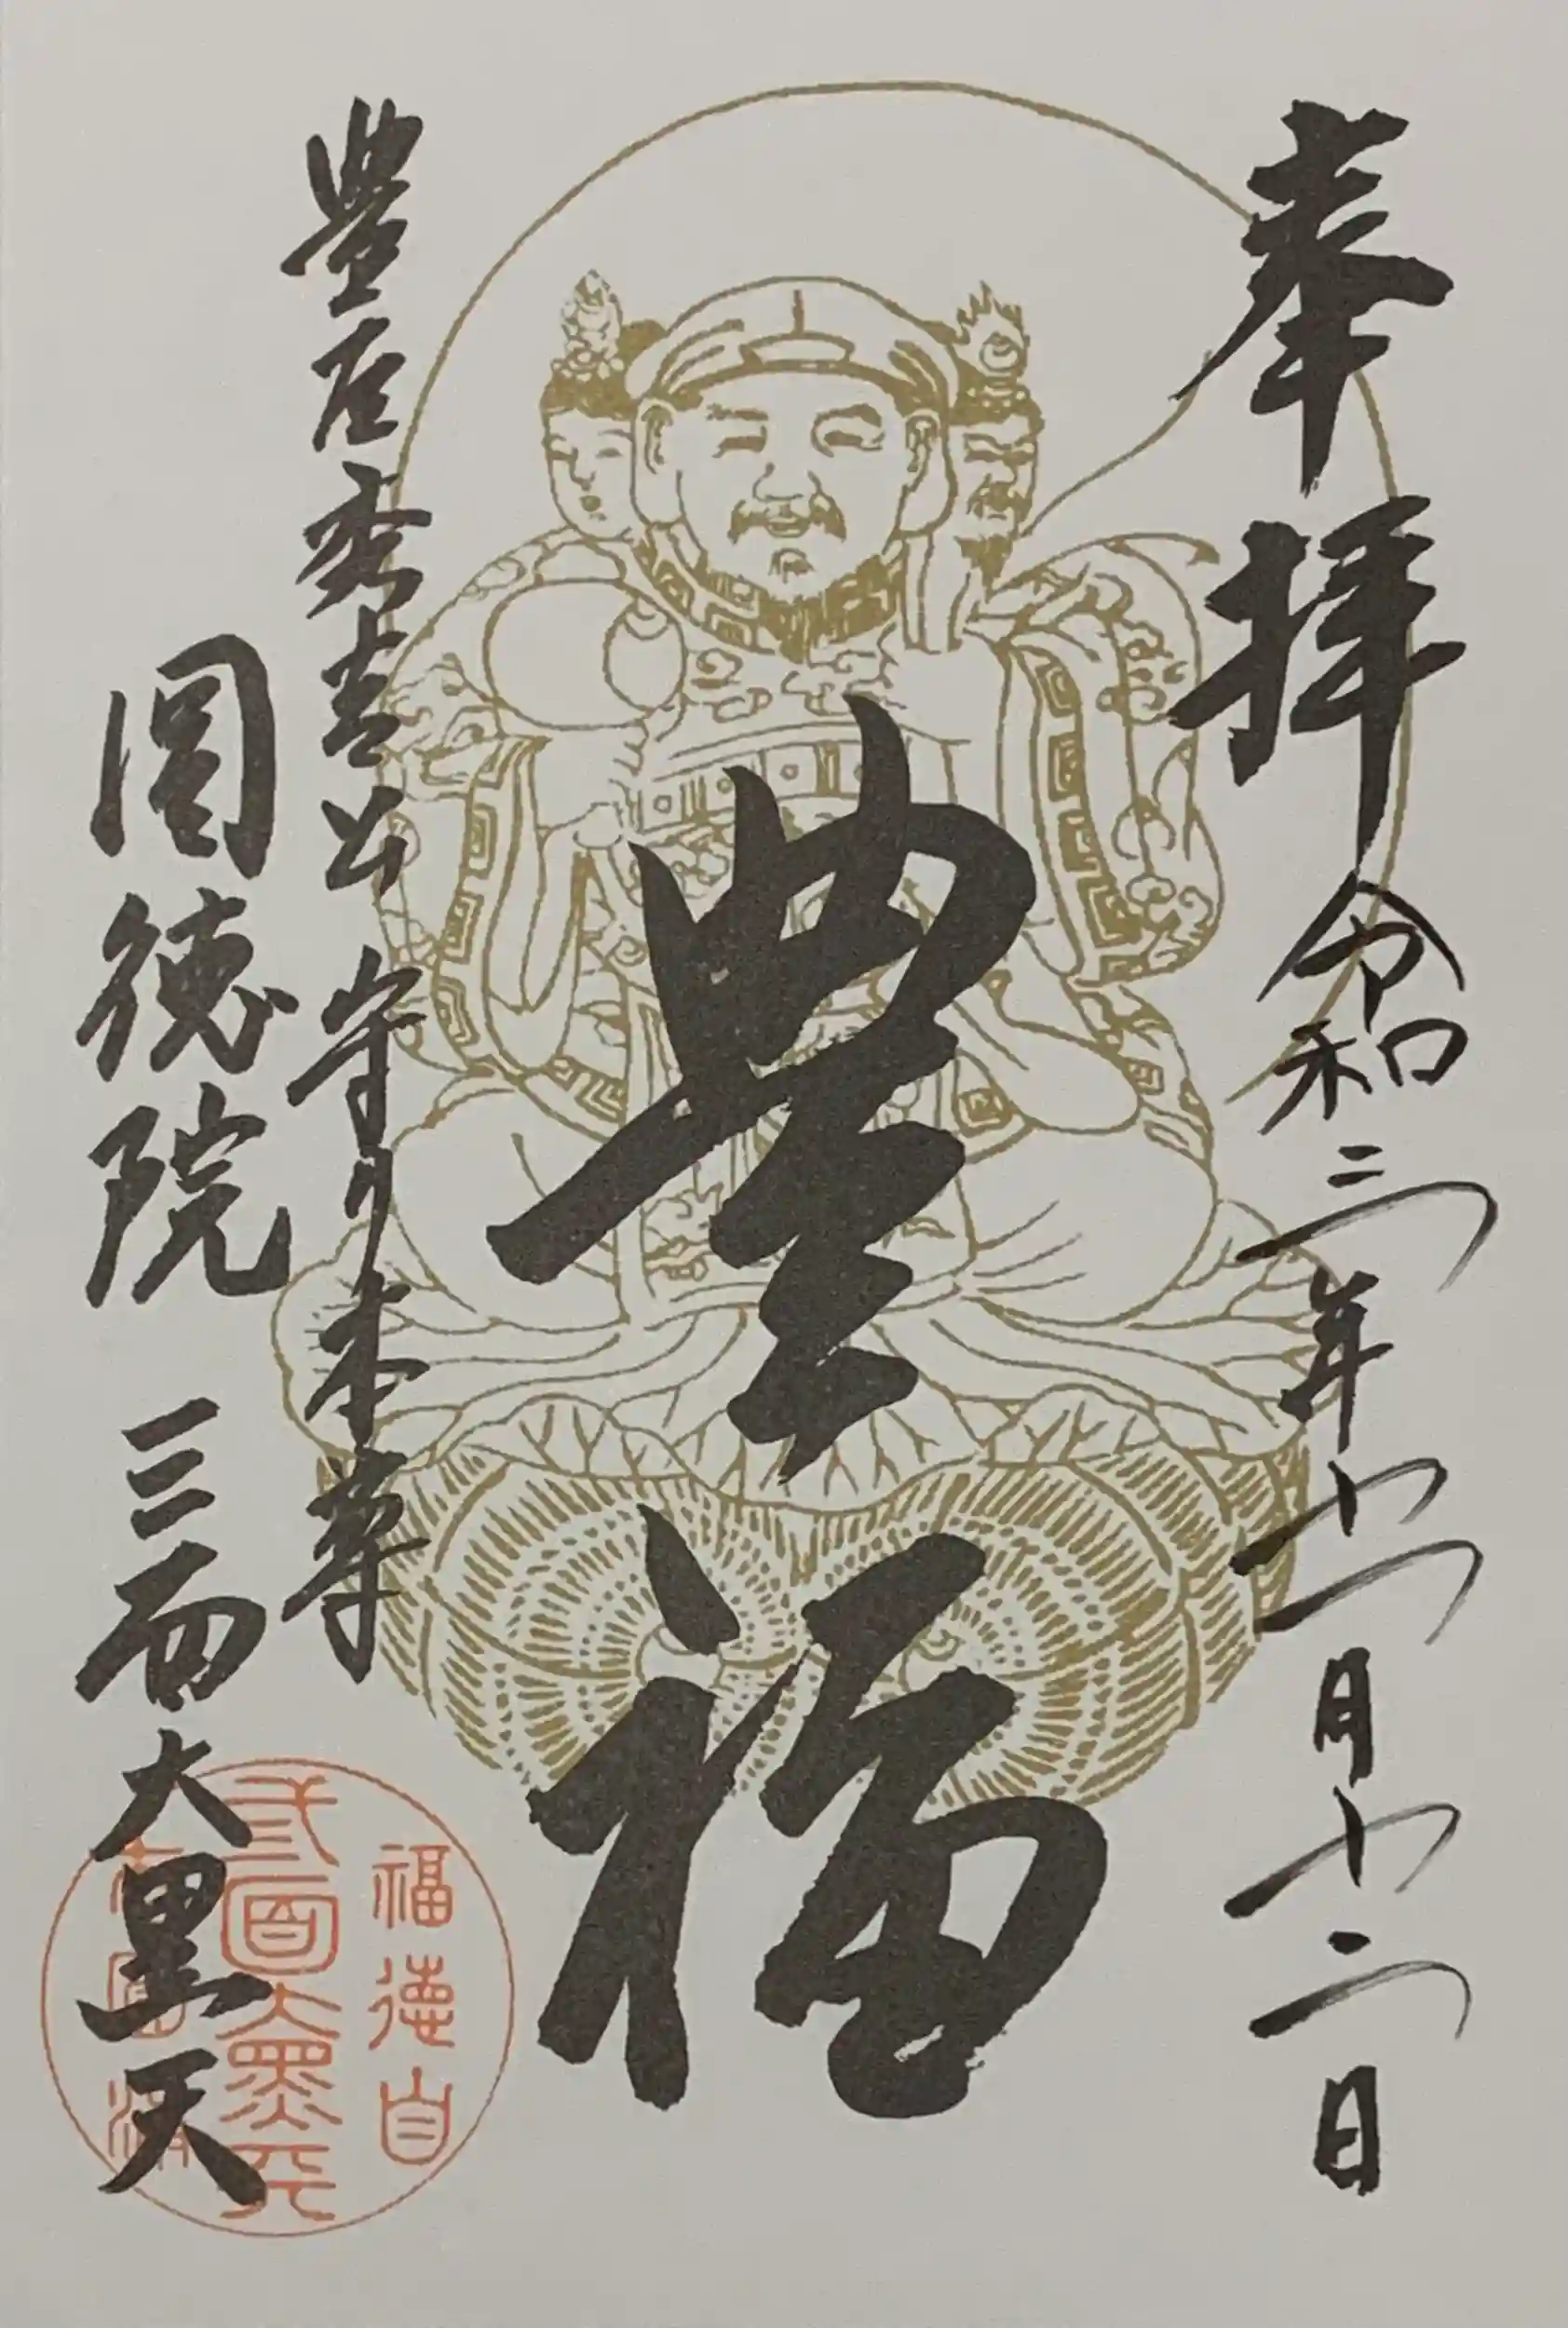 奉拝 令和三年十一月十二日
豊福
豊臣秀吉公 守り本尊
圓徳院 三面大黒天
福徳自
三面大黒天